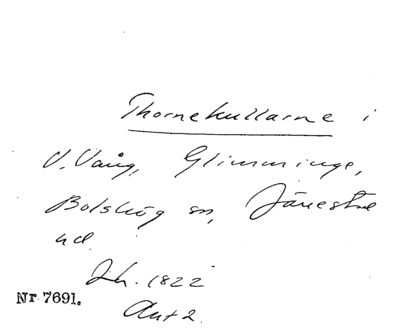 Thornekullarne i
V. Vång, Glimminge,
Bolshög sn, Järrestad
hd.
Lh. 1822
Nr 7691.
Akt 2.